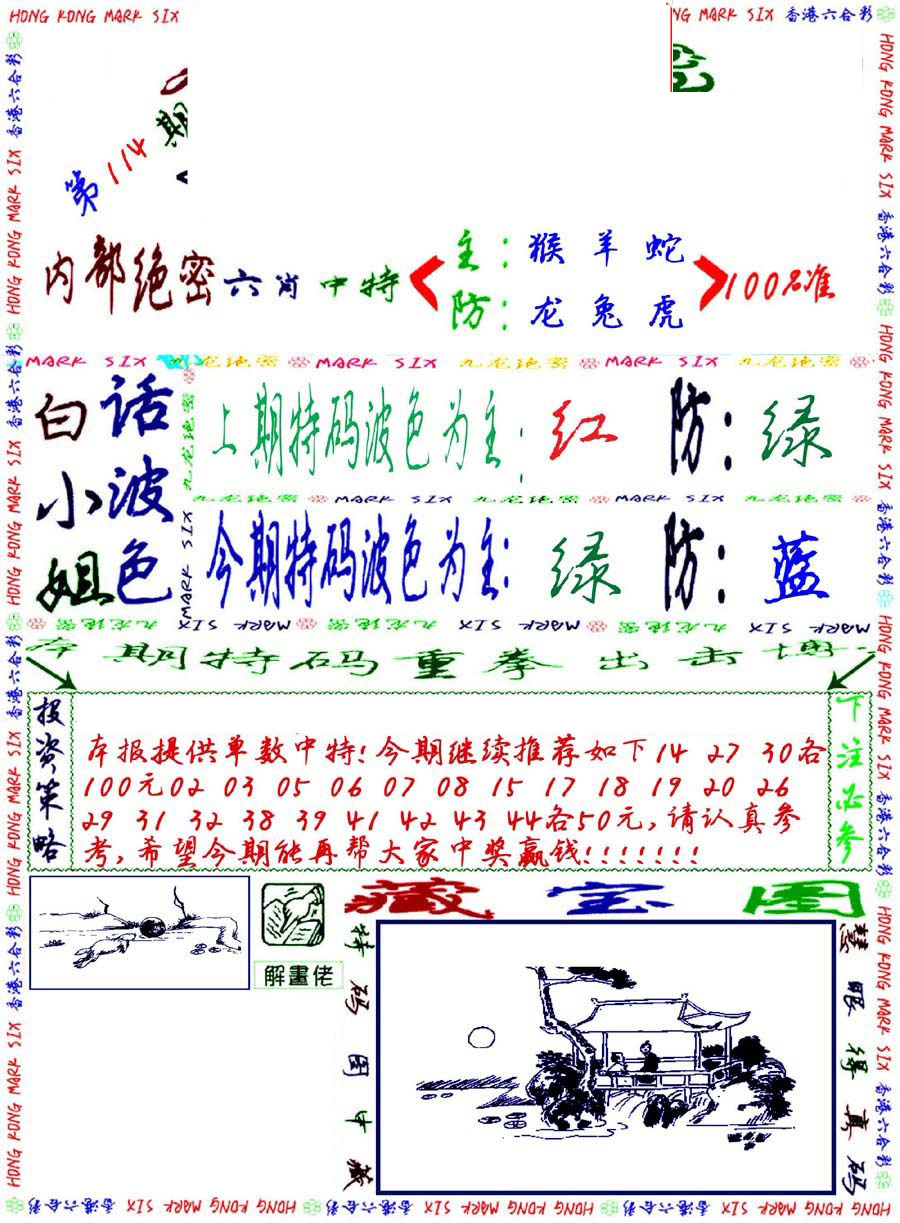 HONG KONG MARK SIX
NG MARK SIX 香港六合彩
第114期
内部绝密六肖中特
主:猴羊蛇
防:龙兔虎
100%准
MARK SIX 九龙绝密 MARK SIX 九龙绝密 MARK SIX 九龙绝密
白小姐
话波色
上期特码波色为主:红 防:绿
九龙绝密 MARK SIX 九龙绝密 MARK SIX 九龙绝密
今期特码波色为主:绿 防:蓝
九龙绝密 MARK SIX 九龙绝密 MARK SIX 九龙绝密 MARK SIX
本期特码重拳出击博
投资策略
本报提供单数中特!今期继续推荐如下14 27 30各
100元02 03 05 06 07 08 15 17 18 19 20 26
29 31 32 38 39 41 42 43 44各50元,请认真参
考,希望今期能再帮大家中奖赢钱!!!!!!!
下注必参
解畫佬
藏宝图
特码图中藏
慧眼得真码
HONG KONG MARK SIX 香港六合彩